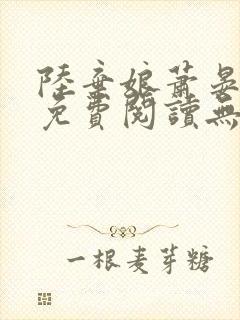 陸棄娘蕭晏
免費閱讀無
一根麦芽糖